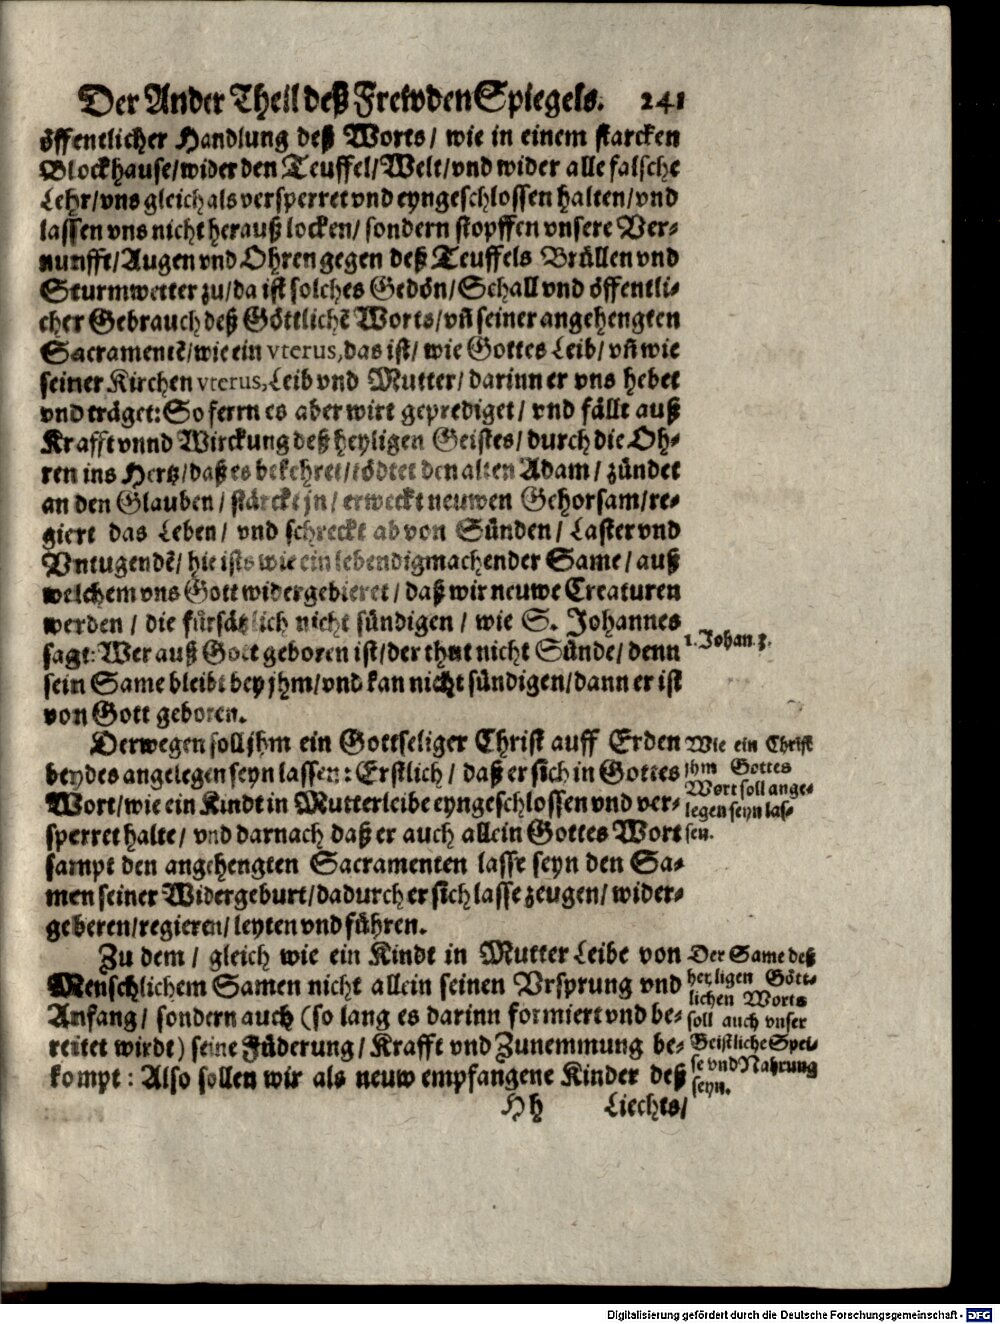 Der Ander Theil deß Frewden Spiegels. 241
öffentlicher Handlung deß Worts/ wie in einem starcken
Blockhause/wider den Teuffel/Welt/vnd wider alle falsche
Lehr/vns gleich als versperret vnd eyngeschlossen halten/vnd
lassen vns nicht herauß locken/ sondern stopffen vnsere Ver-
nunfft/Augen vnd Ohren gegen deß Teuffels Brüllen vnd
Sturmwetter zu/da ist solches Gedön/Schall vnd öffentli-
cher Gebrauch deß Göttlichē Worts/vñ seiner angehengten
Sacramentē/wie ein vterus,das ist/ wie Gottes Leib/ vñ wie
seiner Kirchen vterus,Leib vnd Mutter/darinn er vns hebet
vnd träget: So ferrn es aber wirt geprediget/ vnd fällt auß
Krafft vnnd Wirckung deß heyligen Geistes/ durch die Oh-
ren ins Hertz/daß es bekehret/tödtet den alten Adam/ zündet
an den Glauben/ stärckt jn/ erweckt neuwen Gehorsam/re-
giert das Leben/ vnd schreckt ab von Sünden/ Laster vnd
Vntugendē/ hie ists wie ein lebendigmachender Same/ auß
welchem vns Gott widergebieret/ daß wir neuwe Creaturen
werden/ die fürsätzlich nicht sündigen/ wie S. Johannes
sagt: Wer auß Gott geboren ist/der thut nicht Sünde/ denn
sein Same bleibt bey jhm/vnd kan nicht sündigen/dann er ist
von Gott geboren.
1. Johan 3.
Derwegen soll jhm ein Gottseliger Christ auff Erden
beydes angelegen seyn lassen: Erstlich/ daß er sich in Gottes
Wort/wie ein Kindt in Mutterleibe eyngeschlossen vnd ver-
sperret halte/ vnd darnach daß er auch allein Gottes Wort
sampt den angehengten Sacramenten lasse seyn den Sa-
men seiner Widergeburt/dadurch er sich lasse zeugen/ wider-
geberen/regieren/ leyten vnd führen.
Wie ein Christ
jhm Gottes
Wort soll ange-
legen seyn las-
sen.
Zu dem/ gleich wie ein Kindt in Mutter Leibe von
Menschlichem Samen nicht allein seinen Vrsprung vnd
Anfang/ sondern auch (so lang es darinn formiert vnd be-
reitet wirdt) seine Füderung/ Krafft vnd Zunemmung be-
kompt: Also sollen wir als neuw empfangene Kinder deß
Der Same deß
heyligen Gött-
lichen Worts
soll auch vnser
Geistliche Spei-
se vnd Nahrung
seyn.
Hh Liechts/
Digitalisierung gefördert durch die Deutsche Forschungsgemeinschaft - DFG